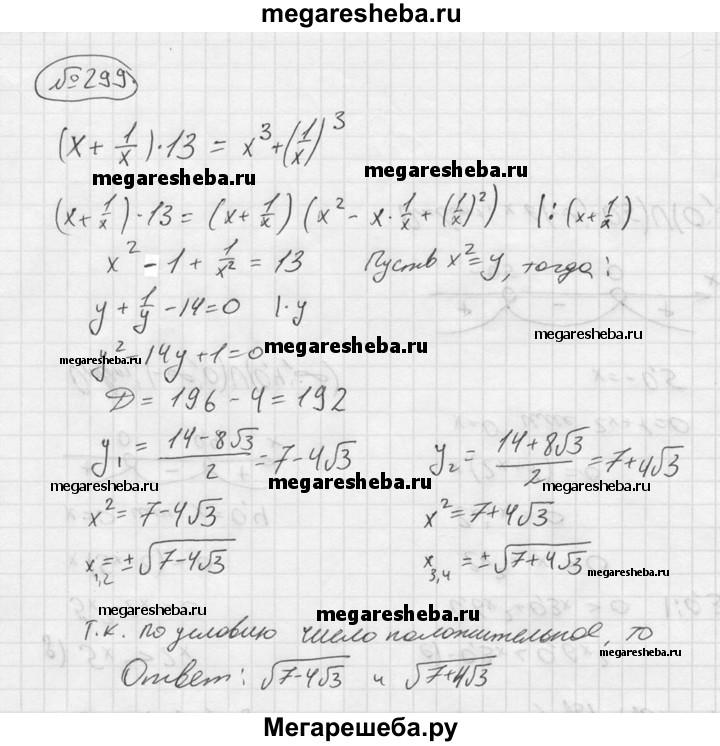 megaresheba.ru
№299.
(x + 1/x)·13 = x³ + (1/x)³
megaresheba.ru megaresheba.ru
(x + 1/x)·13 = (x + 1/x)(x² - x·1/x + (1/x)²) |:(x + 1/x)
x² - 1 + 1/x² = 13 Пусть x² = y, тогда:
y + 1/y - 14 = 0 |·y
megaresheba.ru
megaresheba.ru megaresheba.ru
y² - 14y + 1 = 0
D = 196 - 4 = 192
y₁ = (14 - 8√3)/2 = 7 - 4√3 y₂ = (14 + 8√3)/2 = 7 + 4√3
megaresheba.ru megaresheba.ru megaresheba.ru
x² = 7 - 4√3 x² = 7 + 4√3
x₁,₂ = ±√(7 - 4√3) x₃,₄ = ±√(7 + 4√3)
megaresheba.ru
megaresheba.ru megaresheba.ru
Т.к. по условию число положительное, то
megaresheba.ru
Ответ: √(7 - 4√3) и √(7 + 4√3)
Мегарешеба.ру